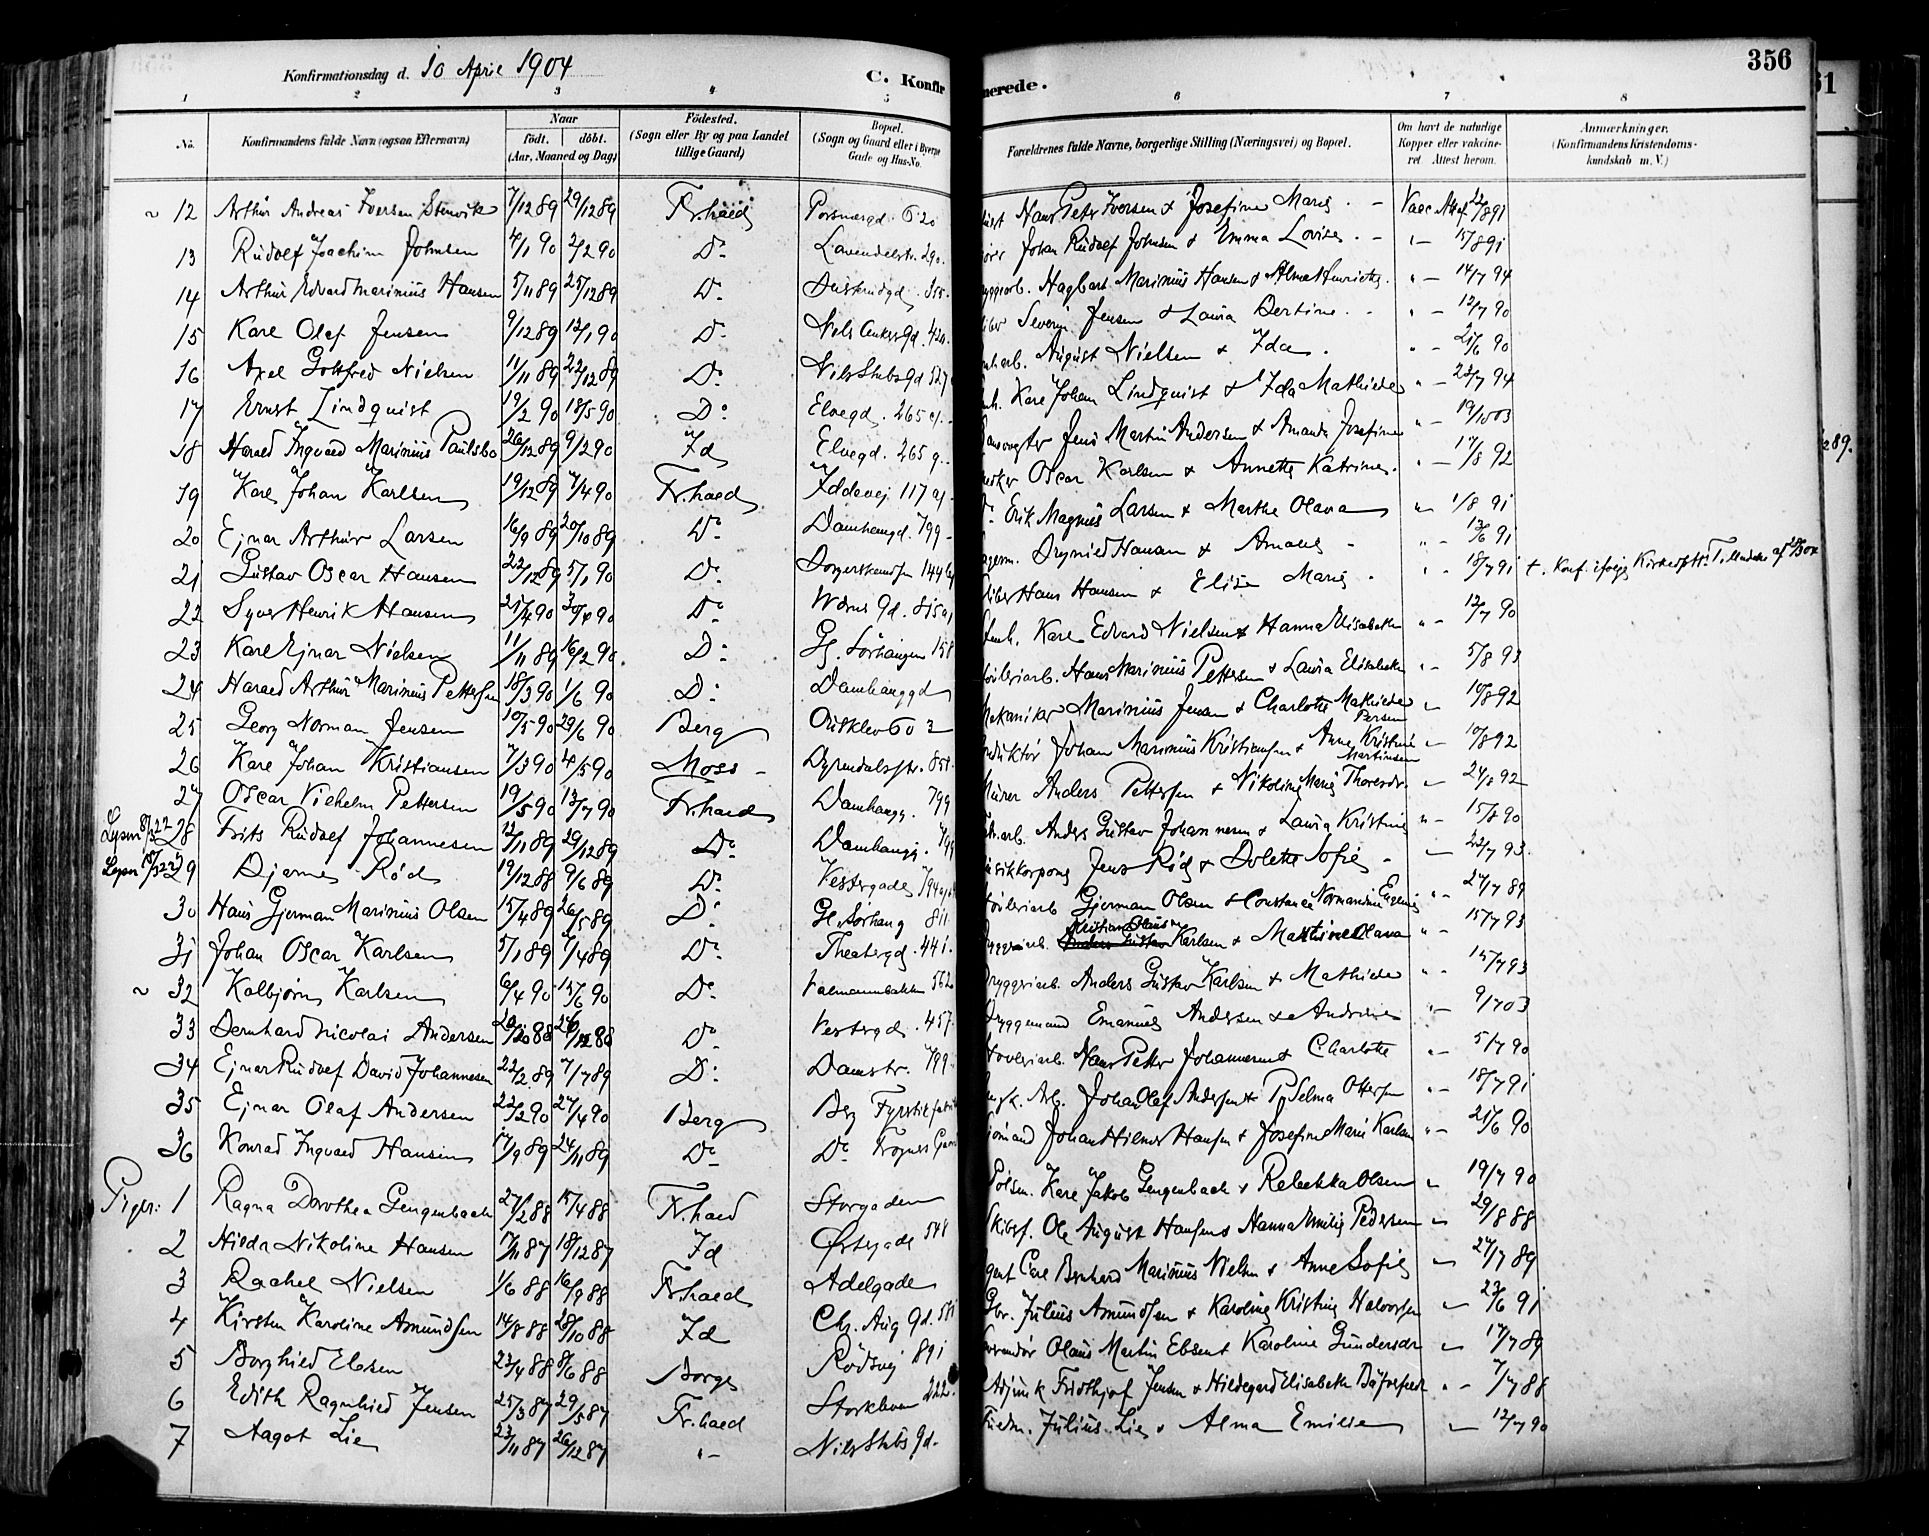 Konfirmationsdag d. 10 April 1904
C. Konfir
merede.
356
1 2 3 4 5 6 7 8
No. Konfirmandens fulde Navn (ogsaa Efternavn) Naar født. døbt. (Aar, Maaned og Dag) Fødested. (Sogn eller By og paa Landet tillige Gaard) Bopæl. (Sogn og Gaard eller i Byerne Gade og Hus-No. Forældrenes fulde Navne, borgerlige Stilling (Næringsvei) og Bopæl. Om havt de naturlige Kopper eller vaccineret Attest herom. Anmærkninger. (Konfirmandens Kristendomskundskab m. V.)
12 Arthur Andreas Iversen Stenvik 7/12 89 29/12 89 Fr.hald Porsnesgd. 620 Hans Peter Iversen & Josefine Marie. – Vacc Att. af 22/8 91
13 Rudolf Joachim Johnsen 4/1 90 2/2 90 Do. Lavendelstr. 290. Johan Rudolf Johnsen & Emma Lovise. – " – 15/8 91
14 Arthur Edvard Marinius Hansen 5/11 89 25/12 89 Do. 355. Hagbart Marinius Hansen & Alma Henriette. " – 14/7 94
15 Karl Olaf Jensen 9/12 89 12/1 90 Do. Nels Ankersgd. 420. Severin Jensen & Laura Bertine. " – 12/7 90
16 Axel Gottfred Nielsen 11/11 89 22/12 89 Do. Nils Stubsgd 527 August Nielsen & Ida. " – 21/6 90
17 Ernst Lindquist 19/2 90 18/5 90 Do. Elvegd. 265 a. Karl Johan Lindquist & Ida Mathilde " – 23/7 94
18 Harald Ingvald Marinius Paulsbo 26/12 89 9/2 90 Id Elvegd. 265 g. Jens Martin Andersen & Amanda Josefine " – 19/10 03
19 Karl Johan Karlsen 19/12 89 7/4 90 Fr.hald Iddevej 117 a Oscar Karlsen & Annette Katrine. " – 17/8 92
20 Ejnar Arthur Larsen 16/9 89 20/10 89 Do. Damhaugd. 799 Do. Erik Magnus Larsen & Marthe Olava " 1/8 91
21 Gustav Oscar Hansen 22/12 89 5/1 90 Do. 144 Hansen & Amalie – " – 13/6 91
22 Syver Henrik Hansen 25/4 90 Do. Wærns Gd. 815 Hans Hansen & Elise Marie. " – 18/7 91 t. Konf. ifølge
23 Karl Ejnar Nielsen 11/11 89 16/2 90. Do. Gl. Sørhaugen 158 Karl Edvard Nielsen & Hanna Elisabeth " – 12/7 90
24 Harald Arthur Marinius Pettersen 18/3 90 1/6 90 Do. Damhauggd Hans Marinius Pettersen & Laura Elisabeth " – 5/8 93
25 Georg Norman Jensen 10/5 90 29/6 90 Berg Ousklev 603 Mekaniker Marinius Jensen & Charlotte Mathilde Persen – 10/8 92
26 Karl Johan Kristiansen 7/3 90 4/5 90 Moss – Dyrendalsstr. 851. Johan Marinius Kristiansen & Anne Kristine Martinsen – 10/8 92
27 Oscar Vilhelm Pettersen 19/5 90 13/7 90 Fr.hald Damhaugg. 799 Murer Anders Pettersen & Nikoline Marie Thoresdr. – 24/8 92
28 Frits Rudolf Johannesen 12/11 89 29/12 89 Do. Damhaugg. 799 Anders Gustav Johannesen & Laura Kristine " – 15/8 90
29 Bjarne Rød 19/12 88 9/6 89 Do. Vestergade 794 Jens Rød & Dolette Sofie – – 22/7 93.
30 Hans Gjerman Marinius Olsen 15/4 89 26/5 89 Do. Gl. Sørhaug 811 Gjerman Olsen & Constance Normandine Eugenie " – 27/7 89
31 Johan Oscar Karlsen 5/1 89 7/4 89 Do. Theatergd. 441. Kristian Olaus Karlsen & Martine Olava " – 15/7 93
32 Kolbjørn Karlsen 6/4 90 15/6 90 Do. 562 Bryggeriarb. Anders Gustav Karlsen & Mathilde " – 15/7 93
33 Bernhard Nicolai Andersen 20/10 88 26/12 88 Do Vestergd. 457. Bryggemand Emanuel Andersen & Andrine " – 9/7 03
34 Ejnar Rudolf David Johannesen 22/2 89 7/7 89 Do. Damstr. 799 Hans Petter Johannesen & Charlotte " – 5/7 90
35 Ejnar Olaf Andersen 23/2 90 27/4 90 Berg Berg Fyrstikfabrik Johan Olaf Andersen & Selma Ottersen " – 18/7 91
36 Konrad Ingvald Hansen 17/9 89 24/11 89 Do Do. Johan Hilmer Hansen & Josefine Marie Karlsen " – 21/6 90
Piger: 1 Ragna Dorothea Gengenbach 27/2 88 15/4 88 Fr.hald Storgaden Karl Jakob Gengenbach & Rebekka Olsen " 19/7 90
2 Hilda Nikoline Hansen 17/11 87 18/12 87 Id Østergade 548 Skibsf. Ole August Hansen & Hanna Emilie Pedersen – 29/8 88
3 Rachel Nielsen 1/6 88 16/9 88 Fr.hald Adelgade Carl Bernhard Marinius Nielsen & Anne Sofie – 27/7 89
4 Kirsten Karoline Amundsen 14/8 88 28/10 88 Id Chr. Aug Gd. Julius Amundsen & Karoline Kristine Halvorsen – 23/6 91
5 Borghild Ebsen 23/4 88 8/6 88 Borge Rødsvej 891 Olaus Martin Ebsen & Karoline Gundersdr – 17/7 89
6 Edith Ragnhild Jensen 25/3 87 29/5 87 Fr.hald Storkleven 222. Adjunk Fridthjof Jensen & Hildegard Elisabeth " – 7/7 88
7 Aagot Lie 23/11 87 26/12 87 " – Nils Stubs gd. Julius Lie & Alma Emilie – 12/7 90